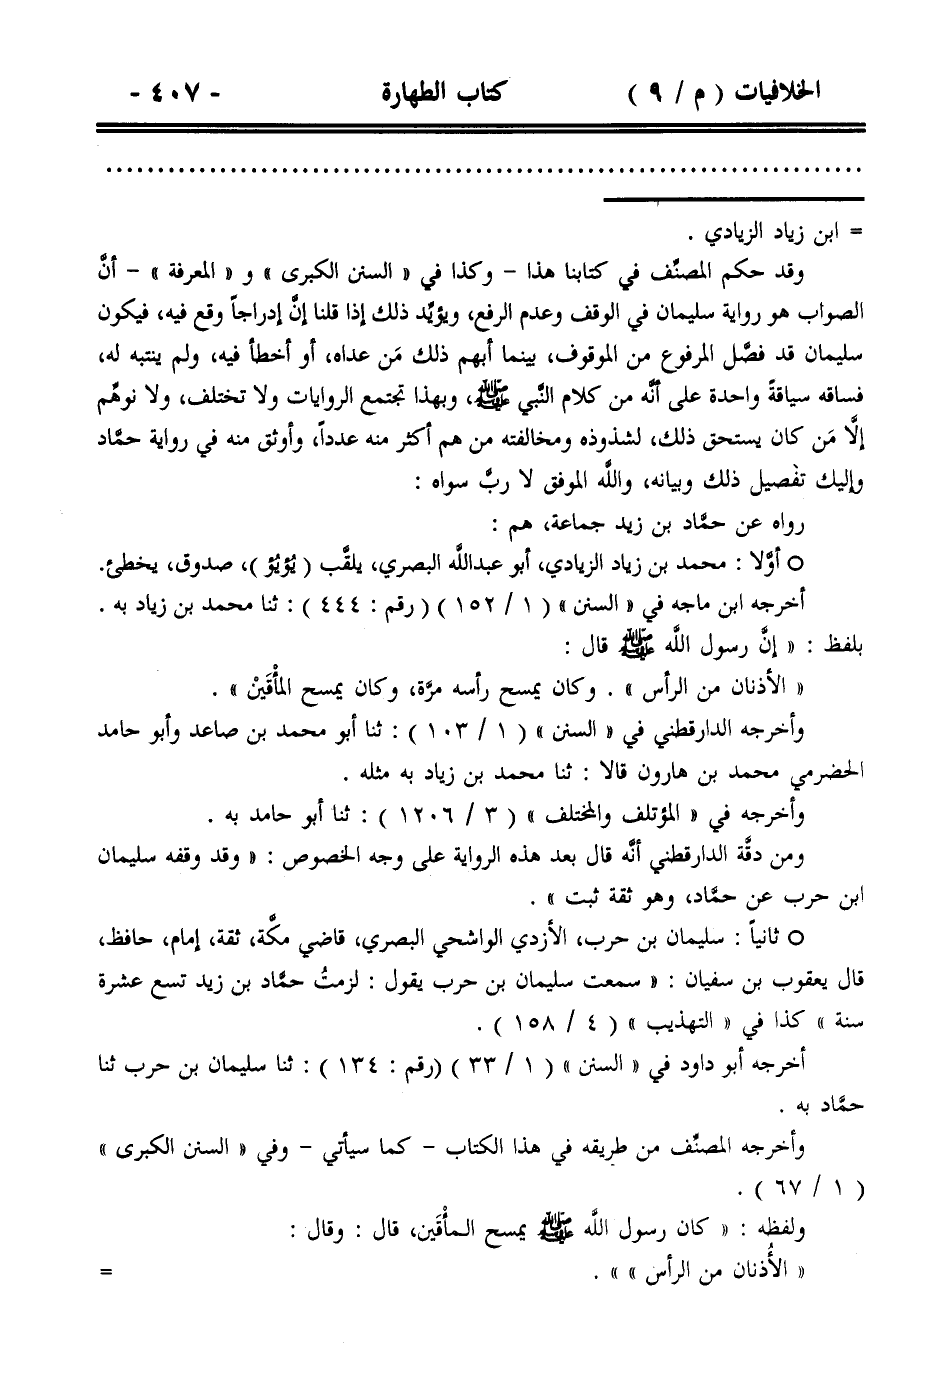 الخلافيات ( م / ٩ ) كتاب الطهارة - ٤٠٧ -
...............................................................
= ابن زياد الزيادي .
وقد حكم المصنِّف في كتابنا هذا - وكذا في « السنن الكبرى » و « المعرفة » - أنَّ
الصواب هو رواية سليمان في الوقف وعدم الرفع، ويؤيِّد ذلك إذا قلنا إنَّ إدراجاً وقع فيه، فيكون
سليمان قد فصَّل المرفوع من الموقوف، بينما أبهم ذلك مَن عداه، أو أخطأ فيه، ولم ينتبه له،
فساقه سياقةً واحدة على أنَّه من كلام النَّبي ﷺ، وبهذا تجتمع الروايات ولا تختلف، ولا نوهِّم
إلَّا مَن كان يستحق ذلك، لشذوذه ومخالفته من هم أكثر منه عدداً، وأوثق منه في رواية حمَّاد
وإليك تفْصيل ذلك وبيانه، واللَّه الموفق لا ربَّ سواه :
رواه عن حمَّاد بن زيد جماعة، هم :
○ أوَّلا : محمد بن زياد الزيادي، أبو عبداللَّه البصري، يلقَّب ( يُؤيُؤ )، صدوق، يخطئ.
أخرجه ابن ماجه في « السنن » ( ١ / ١٥٢ ) ( رقم : ٤٤٤ ) : ثنا محمد بن زياد به .
بلفظ : « إنَّ رسول اللَّه ﷺ قال :
« الأذنان من الرأس » . وكان يمسح رأسه مرَّة، وكان يمسح المأْقَيَنْ » .
وأخرجه الدارقطني في « السنن » ( ١ / ١٠٣ ) : ثنا أبو محمد بن صاعد وأبو حامد
الحضرمي محمد بن هارون قالا : ثنا محمد بن زياد به مثله .
وأخرجه في « المؤتلف والمختلف » ( ٣ / ١٢٠٦ ) : ثنا أبو حامد به .
ومن دقَّة الدارقطني أنَّه قال بعد هذه الرواية على وجه الخصوص : « وقد وقفه سليمان
ابن حرب عن حمَّاد، وهو ثقة ثبت » .
○ ثانياً : سليمان بن حرب، الأزدي الواشحي البصري، قاضي مكَّة، ثقة، إمام، حافظ،
قال يعقوب بن سفيان : « سمعت سليمان بن حرب يقول : لزمتُ حمَّاد بن زيد تسع عشرة
سنة » كذا في « التهذيب » ( ٤ / ١٥٨ ) .
أخرجه أبو داود في « السنن » ( ١ / ٣٣ ) (رقم : ١٣٤ ) : ثنا سليمان بن حرب ثنا
حمَّاد به .
وأخرجه المصنِّف من طريقه في هذا الكتاب - كما سيأتي - وفي « السنن الكبرى »
( ١ / ٦٧ ) .
ولفظه : « كان رسول اللَّه ﷺ يمسح المأْقَين، قال : وقال :
« الأُذنان من الرأس » » . =